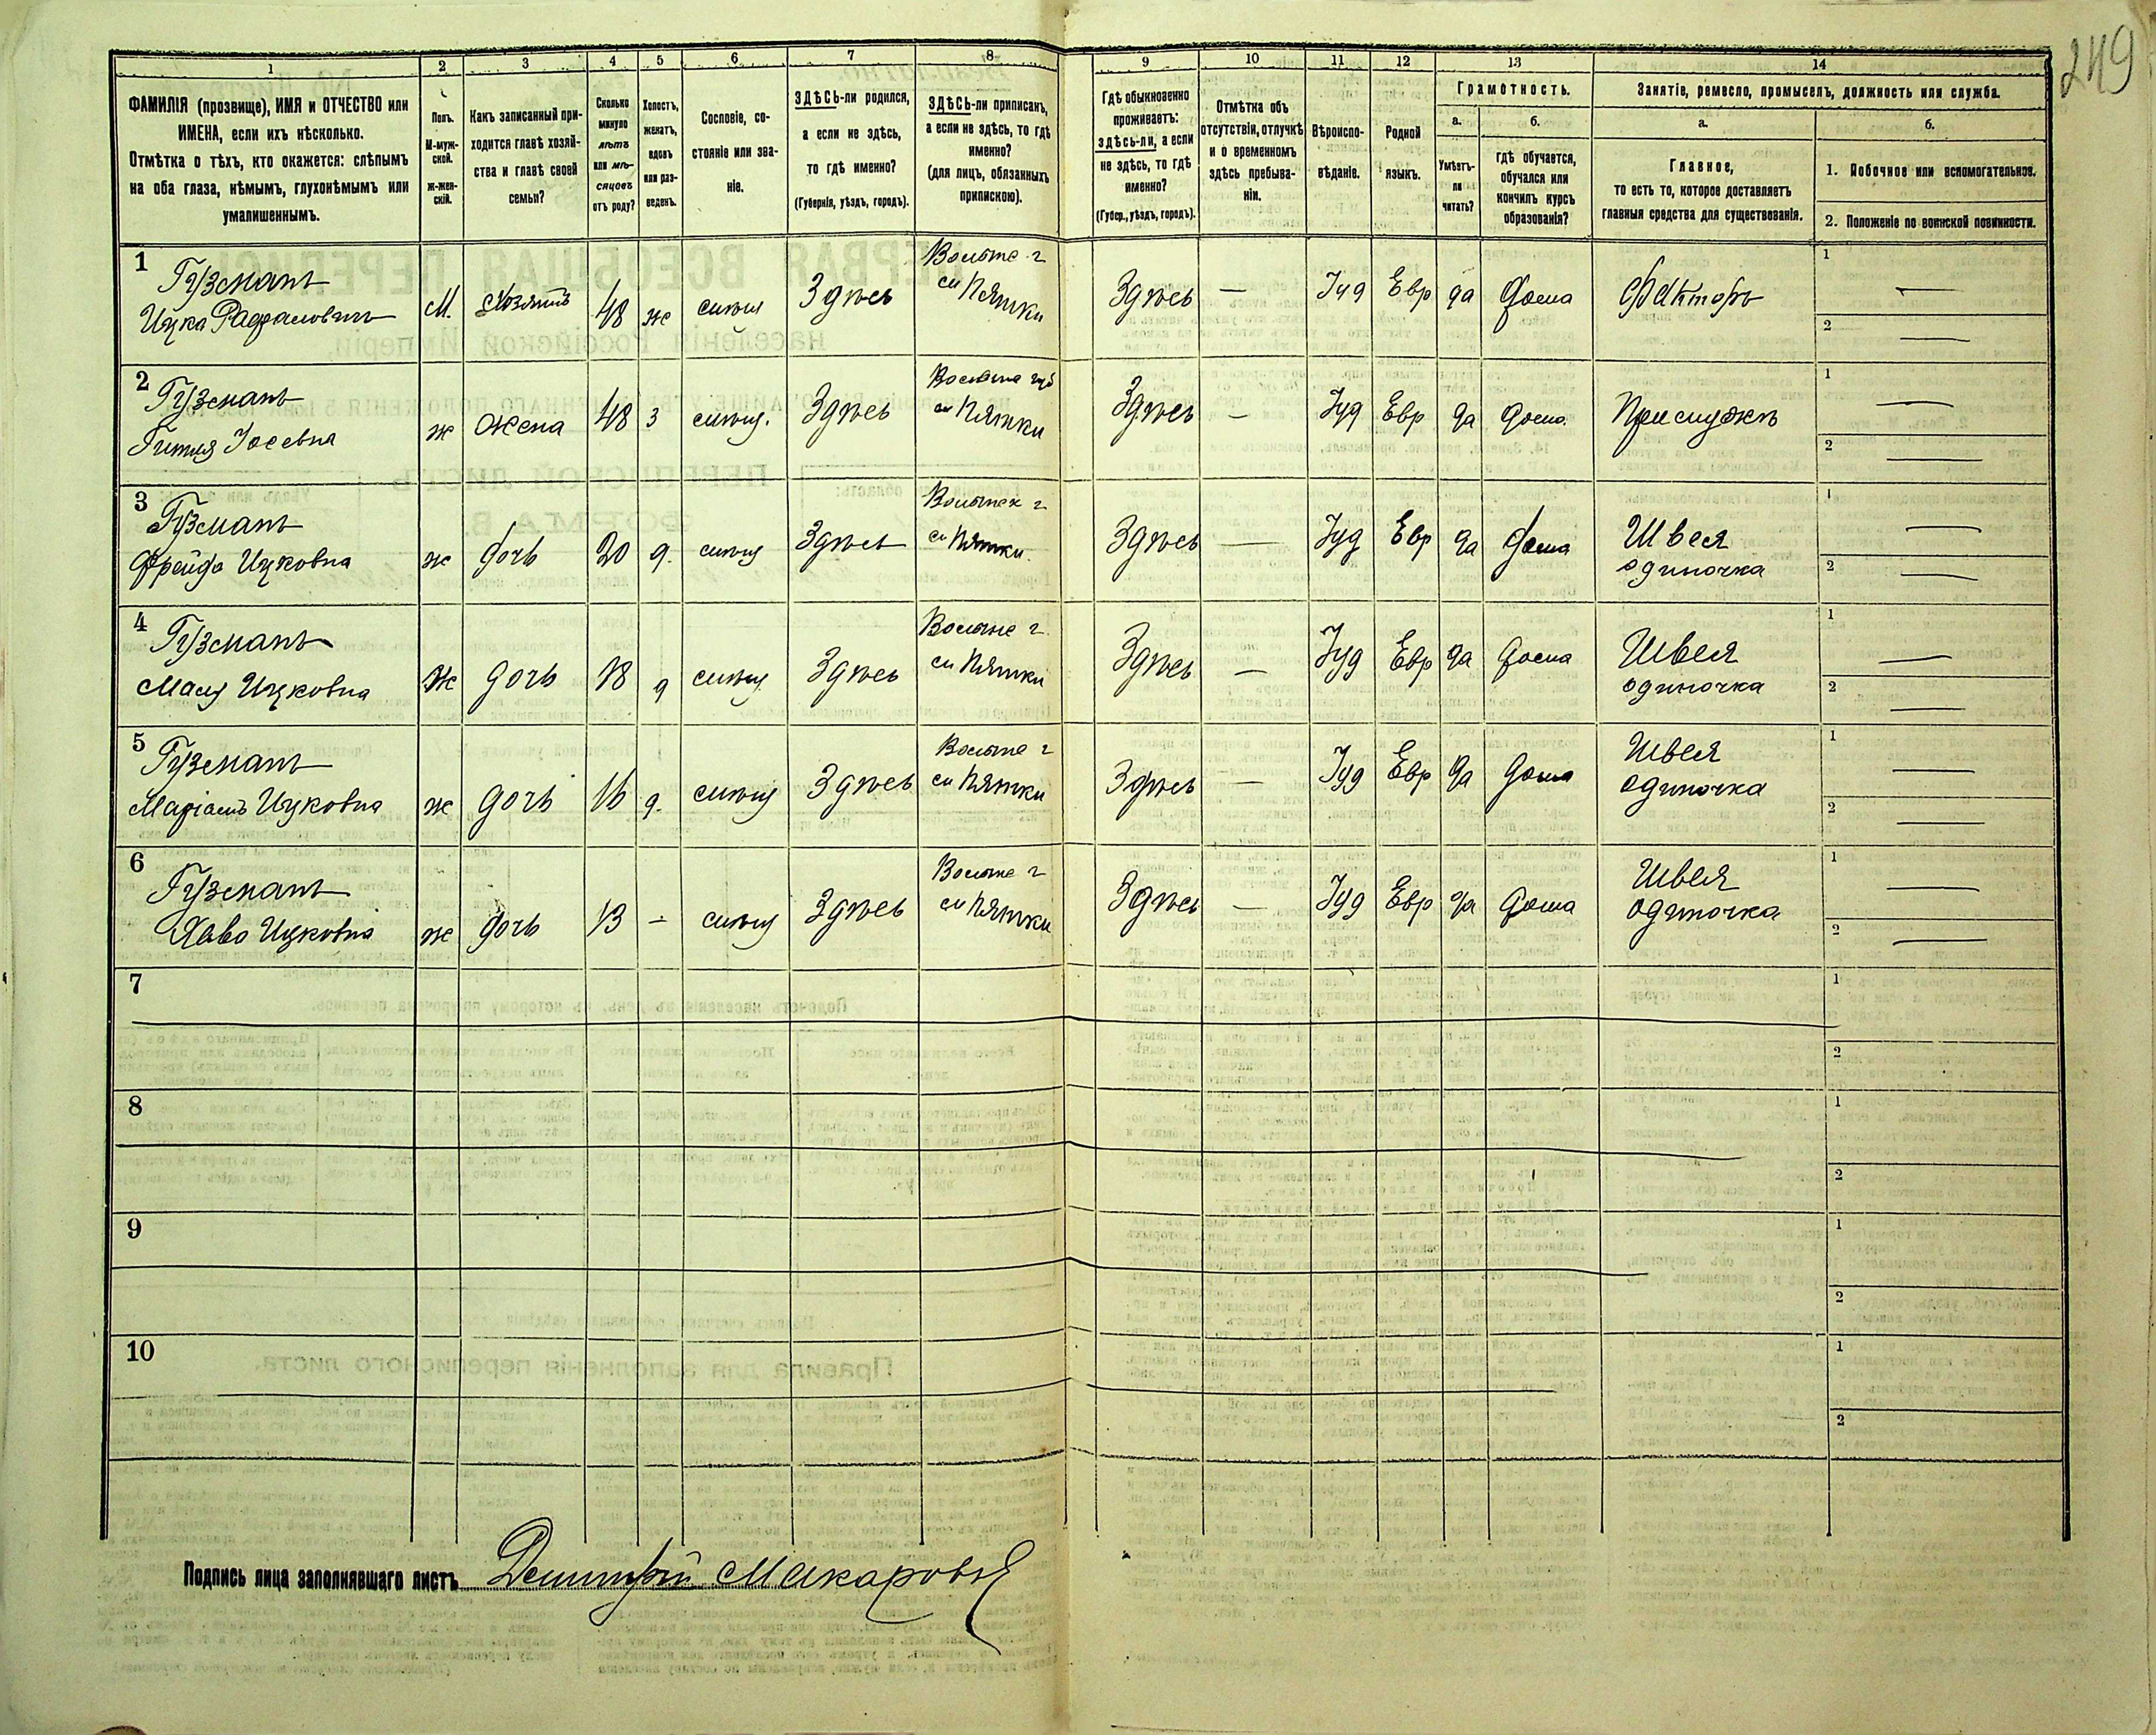 249
1 2 3 4 5 6 7 8 9 10 11 12 13 14
ФАМИЛІЯ (прозвище), ИМЯ и ОТЧЕСТВО или
ИМЕНА, если ихъ нѣсколько.
Отмѣтка о тѣхъ, кто окажется: слѣпымъ
на оба глаза, нѣмымъ, глухонѣмымъ или
умалишеннымъ.
Полъ.
М-муж-
ской.
ж-жен-
скій.
Какъ записанный при-
ходится главѣ хозяй-
ства и главѣ своей
семьи?
Сколько
минуло
лѣтъ
или мѣ-
сяцовъ
отъ роду?
Холостъ,
женатъ,
вдовъ
или раз-
веденъ.
Сословіе, со-
стояніе или зва-
ніе.
ЗДѢСЬ-ли родился,
а если не здѣсь,
то гдѣ именно?
(Губернія, уѣздъ, городъ).
ЗДѢСЬ-ли приписанъ,
а если не здѣсь, то гдѣ
именно?
(для лицъ, обязанныхъ
припискою).
Гдѣ обыкновенно
проживаетъ:
здѣсь-ли, а если
не здѣсь, то гдѣ
именно?
(Губер., уѣздъ, городъ).
Отмѣтка объ
отсутствіи, отлучкѣ
и о временномъ
здѣсь пребыва-
ніи.
Вѣроиспо-
вѣданіе.
Родной
языкъ.
Грамотность.
а.
Умѣетъ-
ли
читать?
б.
гдѣ обучается,
обучался или
кончилъ курсъ
образованія?
Занятіе, ремесло, промыселъ, должность или служба.
а.
Главное,
то есть то, которое доставляетъ
главныя средства для существованія.
б.
1. Побочное или вспомогательное.
2. Положеніе по воинской повинности.
1 Гузманъ
Ицка Рафаловичъ
М. Хозяинъ 48 ж Здѣсь
г
Пятки
Здѣсь — Іуд Евр да дома Факторъ
1 —
2 —
2 Гузманъ
Гитля Іосевна
ж жена 48 з Здѣсь
губ
Пятки
Здѣсь — Іуд Евр да дома Прислужъ
1 —
2 —
3 Гузманъ
Фрейда Ицковна
ж дочь 20 д. Здѣсь
г
Пятки
Здѣсь — Іуд Евр да дома Швея
одиночка
1 —
2 —
4 Гузманъ
Маля Ицковна
ж дочь 18 д Здѣсь
г
Пятки
Здѣсь — Іуд Евр да дома Швея
одиночка
1 —
2 —
5 Гузманъ
Маріамъ Ицковна
ж дочь 16 д. Здѣсь
г
Пятки
Здѣсь — Іуд Евр да дома Швея
одиночка
1 —
2 —
6 Гузманъ
Хава Ицковна
ж дочь 13 — Здѣсь
г
Пятки
Здѣсь — Іуд Евр да дома Швея
одиночка
1 —
2 —
7 1
2
8 1
2
9 1
2
10 1
2
Подпись лица заполнявшаго листъ Дмитрій Макаровъ